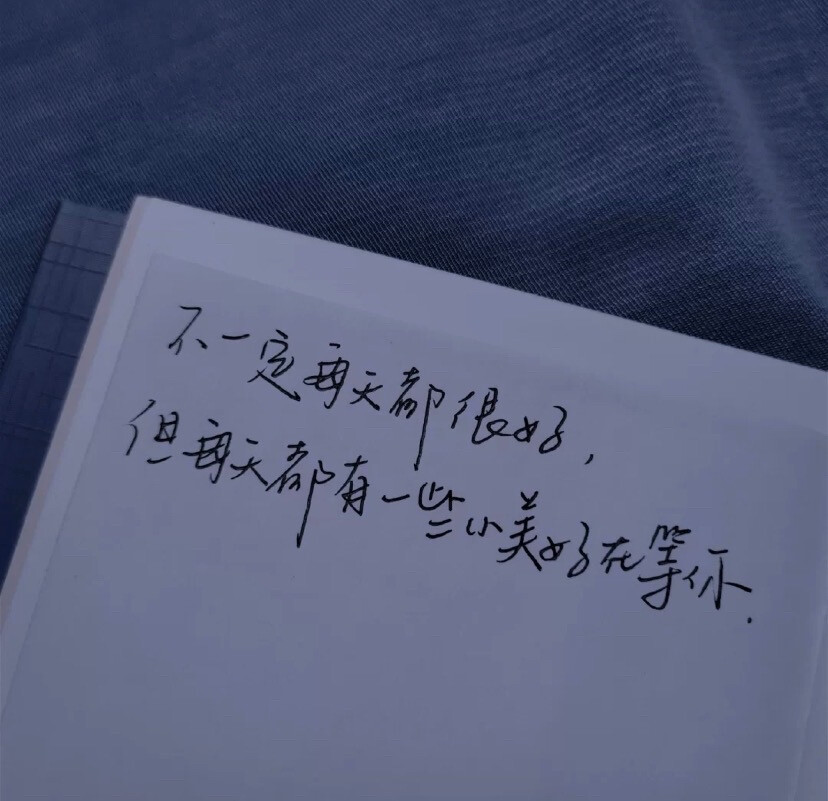 不一定每天都很好,
但每天都有一些小美好在等你.